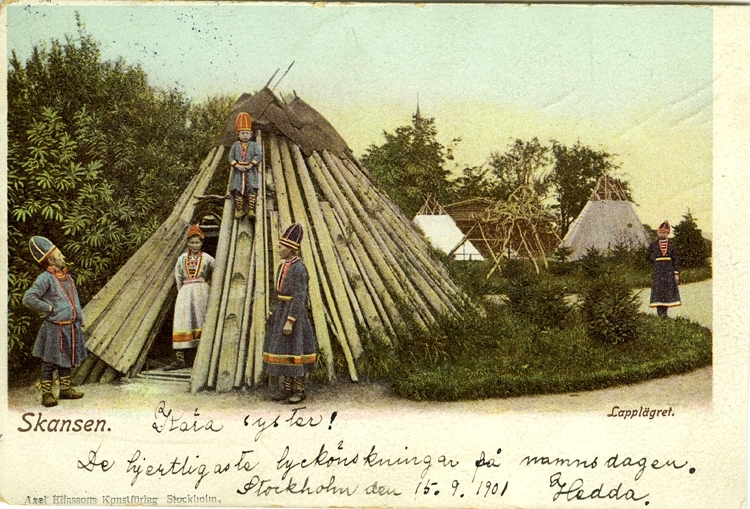 Skansen.
Lapplägret.
Kära syster!
De hjertligaste lyckönskningar på namnsdagen.
Stockholm den 15. 9. 1901 Hedda.
Axel Eliassons Konstförlag Stockholm.